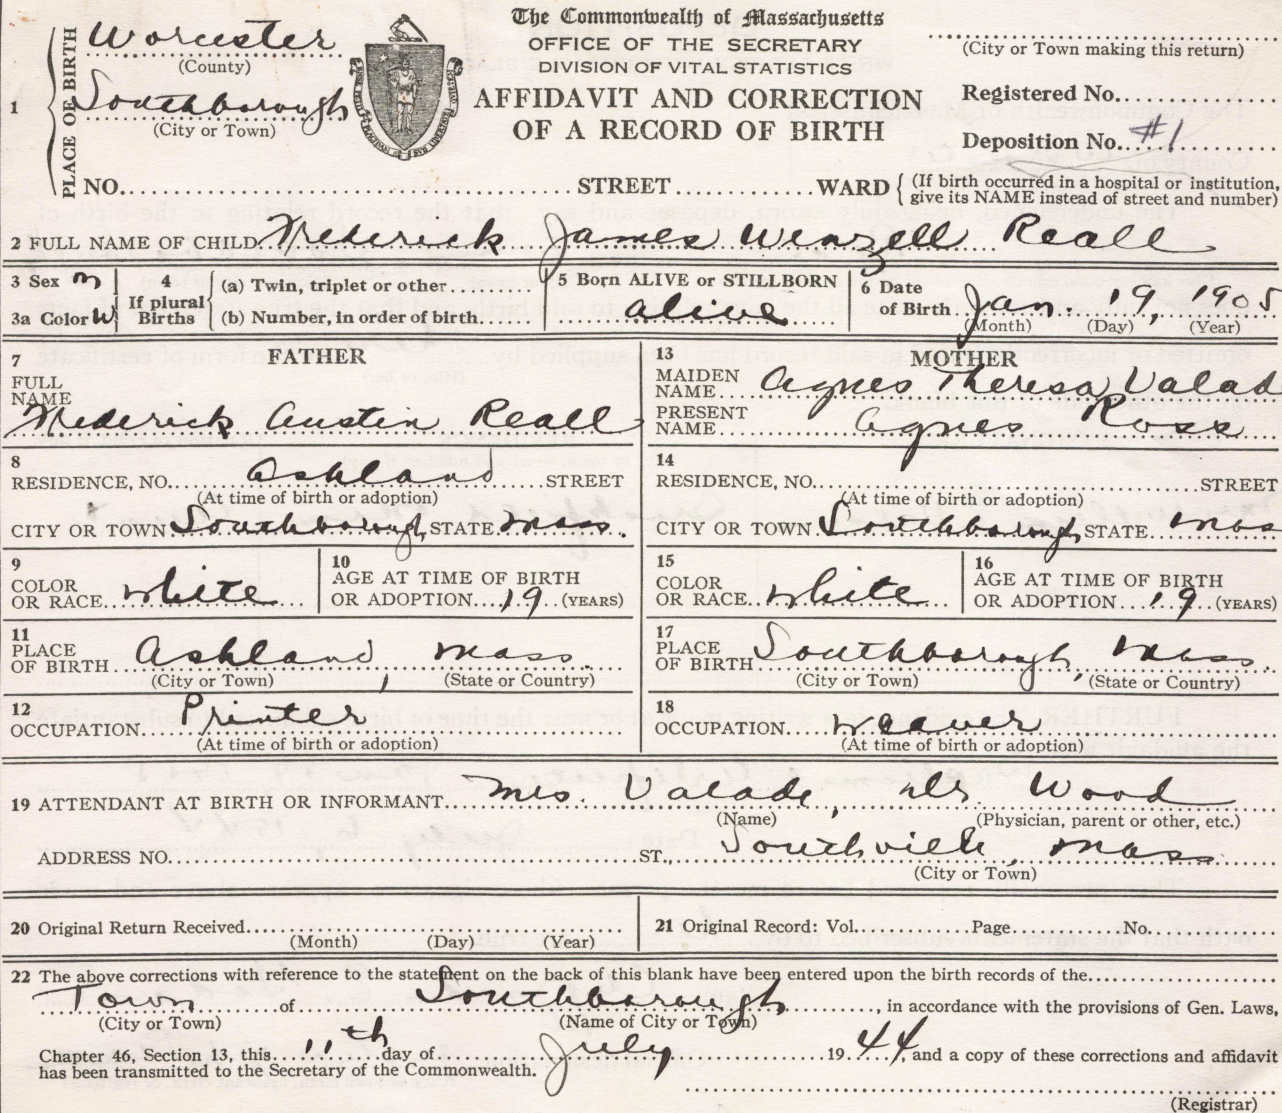 The Commonwealth of Massachusetts
OFFICE OF THE SECRETARY
DIVISION OF VITAL STATISTICS
AFFIDAVIT AND CORRECTION
OF A RECORD OF BIRTH
(City or Town making this return)
Registered No.
Deposition No. #1
1 PLACE OF BIRTH
Worcester
(County)
Southborough
(City or Town)
NO. STREET WARD { (If birth occurred in a hospital or institution, give its NAME instead of street and number)
2 FULL NAME OF CHILD Frederick James Wenzell Reall
3 Sex M
3a Color W
4 If plural Births
(a) Twin, triplet or other
(b) Number, in order of birth
5 Born ALIVE or STILLBORN
alive
6 Date of Birth Jan. 19, 1905
(Month) (Day) (Year)
7 FATHER
FULL NAME
Frederick Austin Reall
8
RESIDENCE, NO. Ashland STREET
(At time of birth or adoption)
CITY OR TOWN Southborough STATE Mass.
9 COLOR OR RACE white
10 AGE AT TIME OF BIRTH OR ADOPTION 19 (YEARS)
11 PLACE OF BIRTH Ashland, Mass.
(City or Town) (State or Country)
12 OCCUPATION Printer
(At time of birth or adoption)
13 MOTHER
MAIDEN NAME Agnes Theresa Valad
PRESENT NAME Agnes Ross
14
RESIDENCE, NO. STREET
(At time of birth or adoption)
CITY OR TOWN Southborough STATE Mas
15 COLOR OR RACE white
16 AGE AT TIME OF BIRTH OR ADOPTION 19 (YEARS)
17 PLACE OF BIRTH Southborough, Mass.
(City or Town) (State or Country)
18 OCCUPATION weaver
(At time of birth or adoption)
19 ATTENDANT AT BIRTH OR INFORMANT Mrs. Valade, Dr Wood
(Name) (Physician, parent or other, etc.)
ADDRESS NO. ST., Southville, Mass
(City or Town)
20 Original Return Received
(Month) (Day) (Year)
21 Original Record: Vol. Page No.
22 The above corrections with reference to the statement on the back of this blank have been entered upon the birth records of the
Town of Southborough, in accordance with the provisions of Gen. Laws,
(City or Town) (Name of City or Town)
Chapter 46, Section 13, this 11th day of July 1944, and a copy of these corrections and affidavit
has been transmitted to the Secretary of the Commonwealth.
(Registrar)